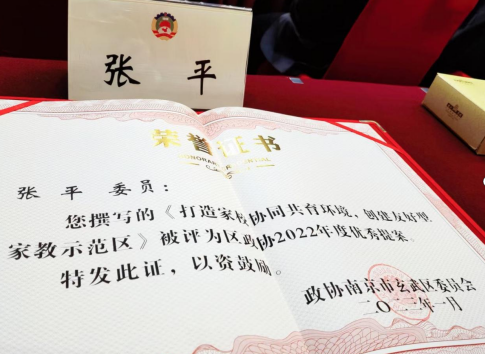 张 平
荣誉证书
张 平 委员：
您撰写的《打造家校协同共育环境，创建友好型
家教示范区》被评为区政协2022年度优秀提案。
特发此证，以资鼓励。
政协南京市玄武区委员会
二〇二三年一月